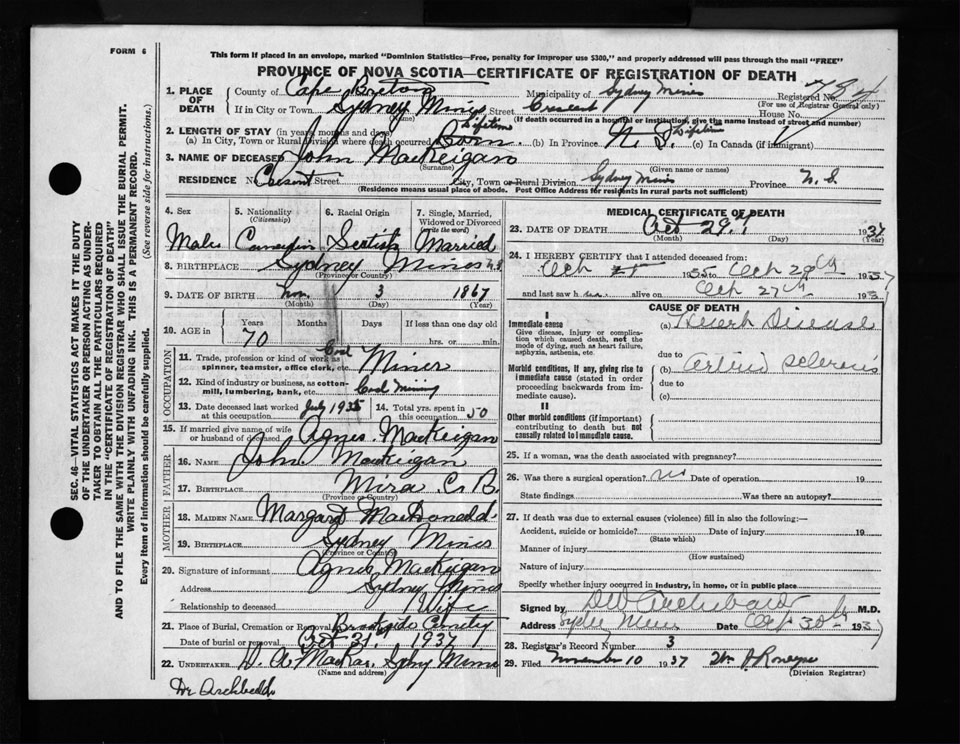 FORM 6
This form if placed in an envelope, marked "Dominion Statistics—Free, penalty for improper use $300," and properly addressed will pass through the mail "FREE"
PROVINCE OF NOVA SCOTIA—CERTIFICATE OF REGISTRATION OF DEATH
1. PLACE OF DEATH
County of Cape Breton Municipality of Sydney Mines Registered No.
(For use of Registrar General only)
If in City or Town Sydney Mines Street Crescent House No.
(Name) (If death occurred in a hospital or institution, give the name instead of street and number)
2. LENGTH OF STAY (in years, months and days) Lifetime Lifetime
(a) In City, Town or Rural Division where death occurred Born (b) In Province N. S. (c) In Canada (if immigrant)
3. NAME OF DECEASED John MacKeigan
(Surname) (Given name or names)
RESIDENCE No. Street City, Town or Rural Division Sydney Mines Province N. S.
(Residence means usual place of abode. Post Office Address for residents in rural parts not sufficient)
4. Sex 5. Nationality (Citizenship) 6. Racial Origin 7. Single, Married, Widowed or Divorced (write the word)
Male Canadian Scotish Married
8. BIRTHPLACE Sydney Mines N.S
(Province or Country)
9. DATE OF BIRTH 3 1867
(Month) (Day) (Year)
10. AGE in Years Months Days If less than one day old
70 hrs. or min.
OCCUPATION
11. Trade, profession or kind of work as spinner, teamster, office clerk, etc. Coal Miner
12. Kind of industry or business, as cotton-mill, lumbering, bank, etc. Coal Mining
13. Date deceased last worked at this occupation July 1935 14. Total yrs. spent in this occupation 50
15. If married give name of wife or husband of deceased Agnes MacKeigan
FATHER
16. NAME John MacKeigan
17. BIRTHPLACE Mira C. B.
(Province or Country)
MOTHER
18. MAIDEN NAME Margaret MacDonald
19. BIRTHPLACE Sydney Mines
(Province or Country)
20. Signature of informant Agnes MacKeigan
Address Sydney Mines
Relationship to deceased Wife
21. Place of Burial, Cremation or Removal Brookside Cemetery
Date of burial or removal Oct 31st 1937
22. UNDERTAKER Sydney Mines
(Name and address)
Dr Archibald
MEDICAL CERTIFICATE OF DEATH
23. DATE OF DEATH Oct 29th 1937
(Month) (Day) (Year)
24. I HEREBY CERTIFY that I attended deceased from:
Oct 1935 to Oct 29th 1937
and last saw h alive on Oct 27th 1937
CAUSE OF DEATH
I
Immediate cause (a) Heart Disease
Give disease, injury or complication which caused death, not the mode of dying, such as heart failure, asphyxia, asthenia, etc.
due to
Morbid conditions, if any, giving rise to immediate cause (stated in order proceeding backwards from immediate cause).
(b)
due to
(c)
II
Other morbid conditions (if important) contributing to death but not causally related to immediate cause.
25. If a woman, was the death associated with pregnancy?
26. Was there a surgical operation? no Date of operation 19
State findings Was there an autopsy?
27. If death was due to external causes (violence) fill in also the following:—
Accident, suicide or homicide? Date of injury 19
(State which)
Manner of injury
(How sustained)
Nature of injury
Specify whether injury occurred in industry, in home, or in public place
Signed by Archibald M.D.
Address Sydney Mines Date Oct 30th 1937
28. Registrar's Record Number 3
29. Filed November 10 1937
(Division Registrar)
SEC. 46—VITAL STATISTICS ACT MAKES IT THE DUTY
OF THE UNDERTAKER OR PERSON ACTING AS UNDER-
TAKER TO OBTAIN ALL THE PARTICULARS REQUIRED
IN THE "CERTIFICATE OF REGISTRATION OF DEATH"
AND TO FILE THE SAME WITH THE DIVISION REGISTRAR WHO SHALL ISSUE THE BURIAL PERMIT.
WRITE PLAINLY WITH UNFADING INK. THIS IS A PERMANENT RECORD.
Every item of information should be carefully supplied. (See reverse side for instructions.)